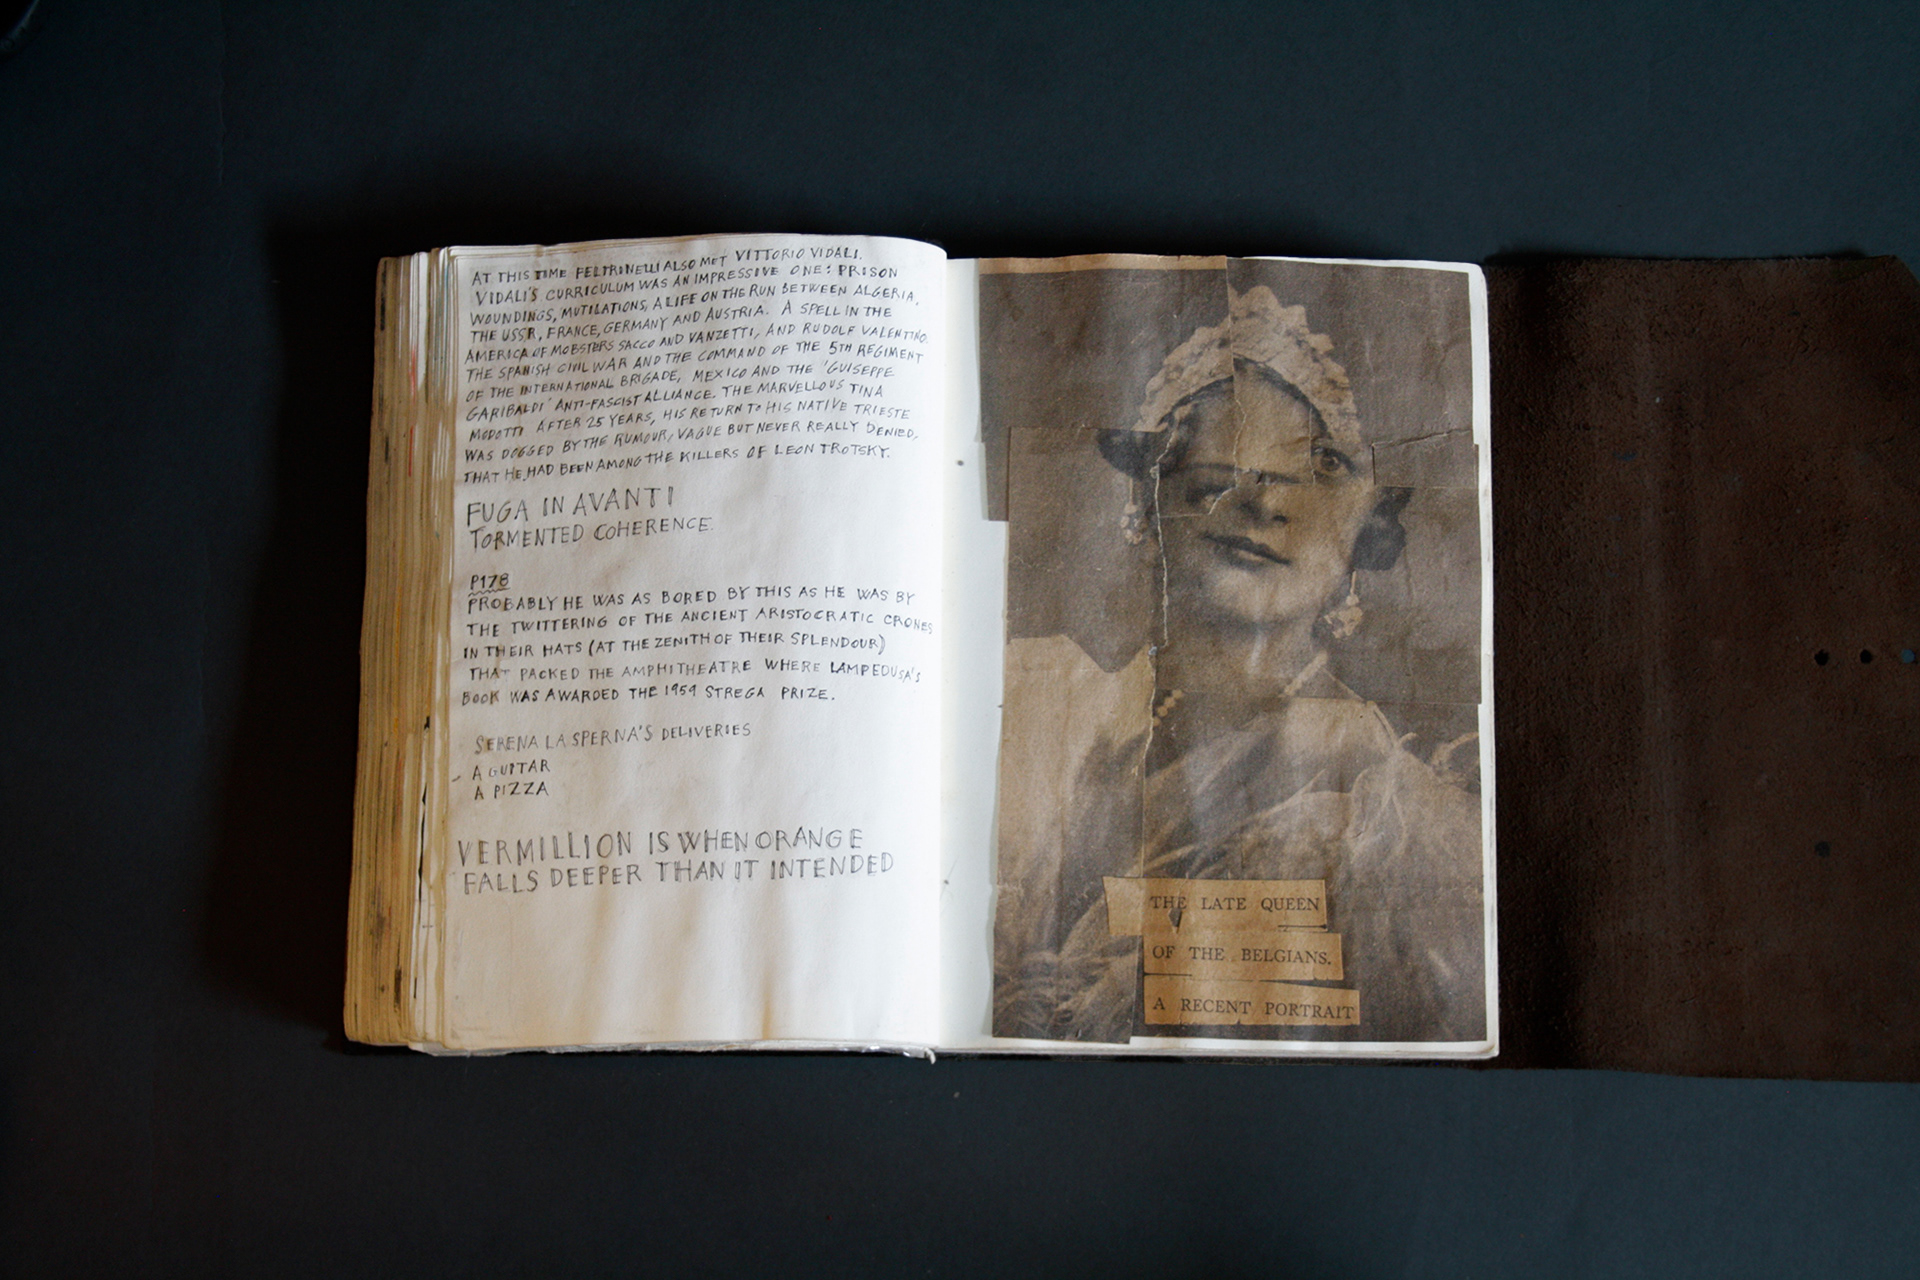 AT THIS TIME FELTRINELLI ALSO MET VITTORIO VIDALI.
VIDALI'S CURRICULUM WAS AN IMPRESSIVE ONE: PRISON
WOUNDINGS, MUTILATIONS, A LIFE ON THE RUN BETWEEN ALGERIA,
THE USSR, FRANCE, GERMANY AND AUSTRIA. A SPELL IN THE
AMERICA OF MOBSTERS SACCO AND VANZETTI, AND RUDOLF VALENTINO.
THE SPANISH CIVIL WAR AND THE COMMAND OF THE 5TH REGIMENT
OF THE INTERNATIONAL BRIGADE, MEXICO AND THE 'GUISEPPE
GARIBALDI' ANTI-FASCIST ALLIANCE. THE MARVELLOUS TINA
MODOTTI AFTER 25 YEARS, HIS RETURN TO HIS NATIVE TRIESTE
WAS DOGGED BY THE RUMOUR, VAGUE BUT NEVER REALLY DENIED,
THAT HE HAD BEEN AMONG THE KILLERS OF LEON TROTSKY.
FUGA IN AVANTI
TORMENTED COHERENCE
P178
PROBABLY HE WAS AS BORED BY THIS AS HE WAS BY
THE TWITTERING OF THE ANCIENT ARISTOCRATIC CRONES
IN THEIR HATS (AT THE ZENITH OF THEIR SPLENDOUR)
THAT PACKED THE AMPHITHEATRE WHERE LAMPEDUSA'S
BOOK WAS AWARDED THE 1959 STREGA PRIZE.
SERENA LA SPERNA'S DELIVERIES
A GUITAR
A PIZZA
VERMILLION IS WHEN ORANGE
FALLS DEEPER THAN IT INTENDED
THE LATE QUEEN
OF THE BELGIANS.
A RECENT PORTRAIT